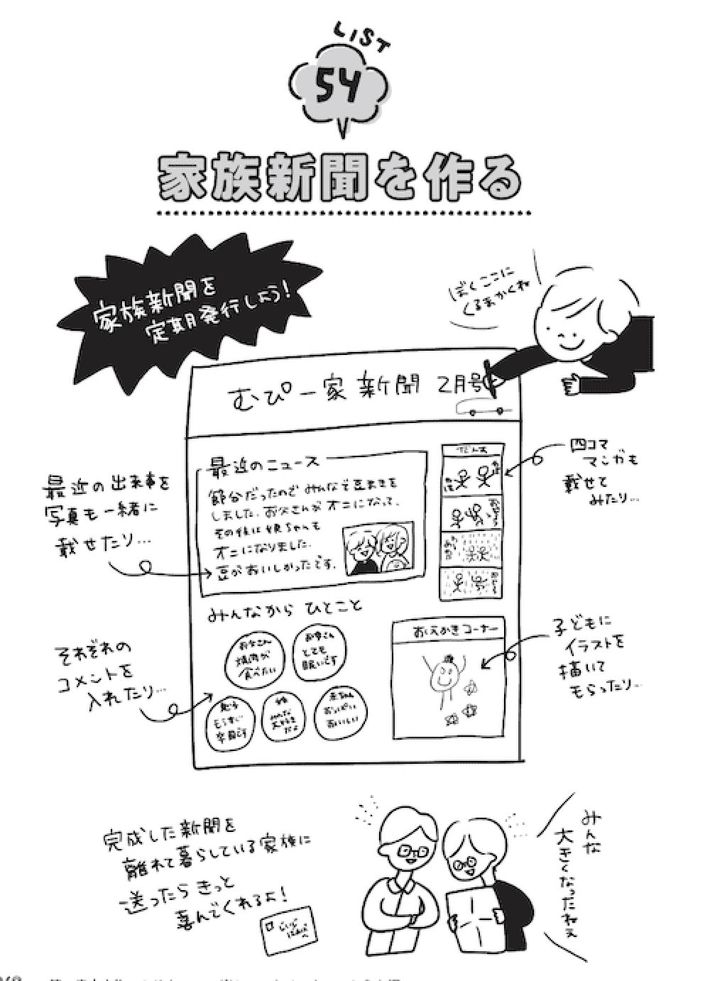 LIST
54
家族新聞を作る
家族新聞を
定期発行しよう!
ぼくここに
くるまかくね
むぴー家新聞 2月号
最近のニュース
節分だったのでみんなで豆まきを
しました。お父さんがオニになって、
その後は姉ちゃんも
オニになりました。
豆がおいしかったです。
最近の出来事を
写真も一緒に
載せたり…
四コマ
マンガも
載せて
みたり…
みんなから ひとこと
お父さん
焼肉が
食べたい
お母さん
とても
眠いです
もうすぐ
卒園です
姉
みんな
大好き
だよ
赤ちゃん
おっぱい
おいしい
それぞれの
コメントを
入れたり…
おえかきコーナー
子どもに
イラストを
描いて
もらったり…
完成した新聞を
離れて暮らしている家族に
送ったらきっと
喜んでくれるよ!
じぃじ
ばぁばへ
みんな
大きくなったねぇ